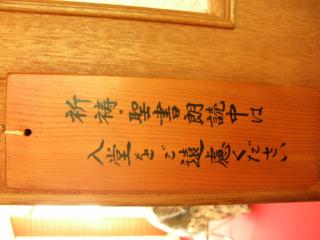 祈祷・聖書朗読中は
入堂をご遠慮ください